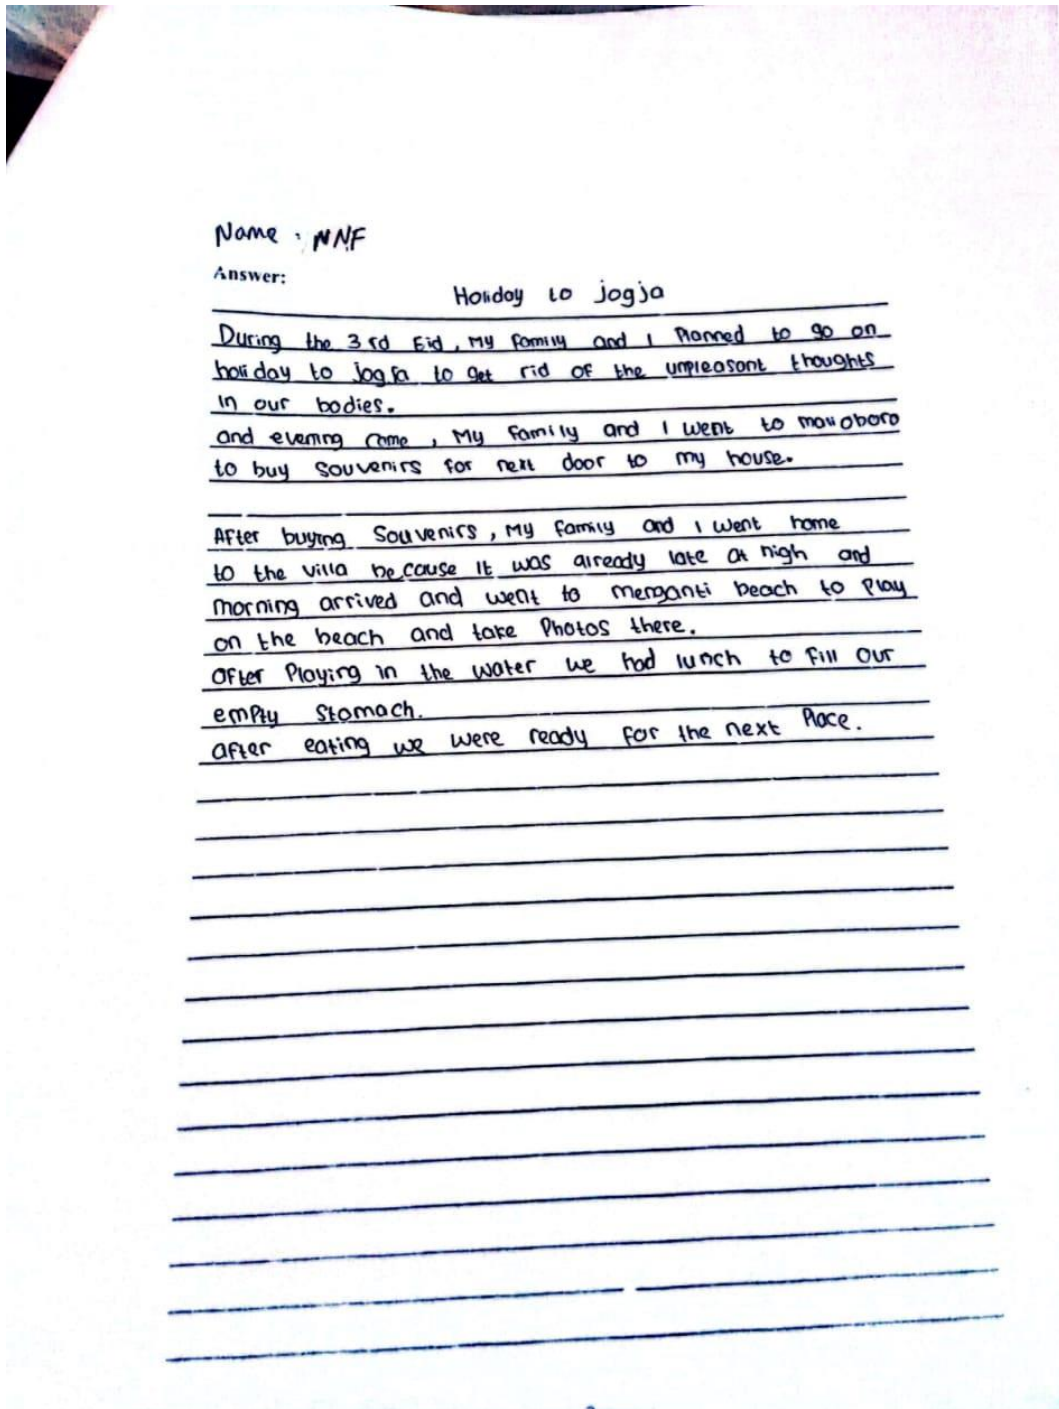 Name : NNF
Answer:
Holiday to jogja
During the 3 rd Eid, My family and I Planned to go on
holiday to jogja to get rid of the unpleasant thoughts
in our bodies.
and evening came, My family and I went to malioboro
to buy souvenirs for next door to my house.
After buying Souvenirs, My family and I went home
to the villa because it was already late at nigh and
morning arrived and went to menganti beach to Play
on the beach and take Photos there.
after Playing in the water we had lunch to fill our
empty stomach.
after eating we were ready for the next Place.